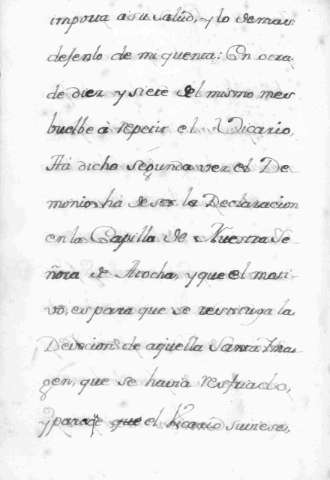 importa a su salud, y lo demas
desenlo de mi quenta: En otra
de diez y siete del mismo mes
buelbe à repetir el Vicario,
Há dicho segunda vez el De-
monio, há de ser la Declaracion
en la Capilla de Nuestra Se-
ñora de Atocha, y que el moti-
vo, es para que se restituya la
Devocion de aquella Santa Ima-
gen, que se havia resfriado,
y para que el Vicario